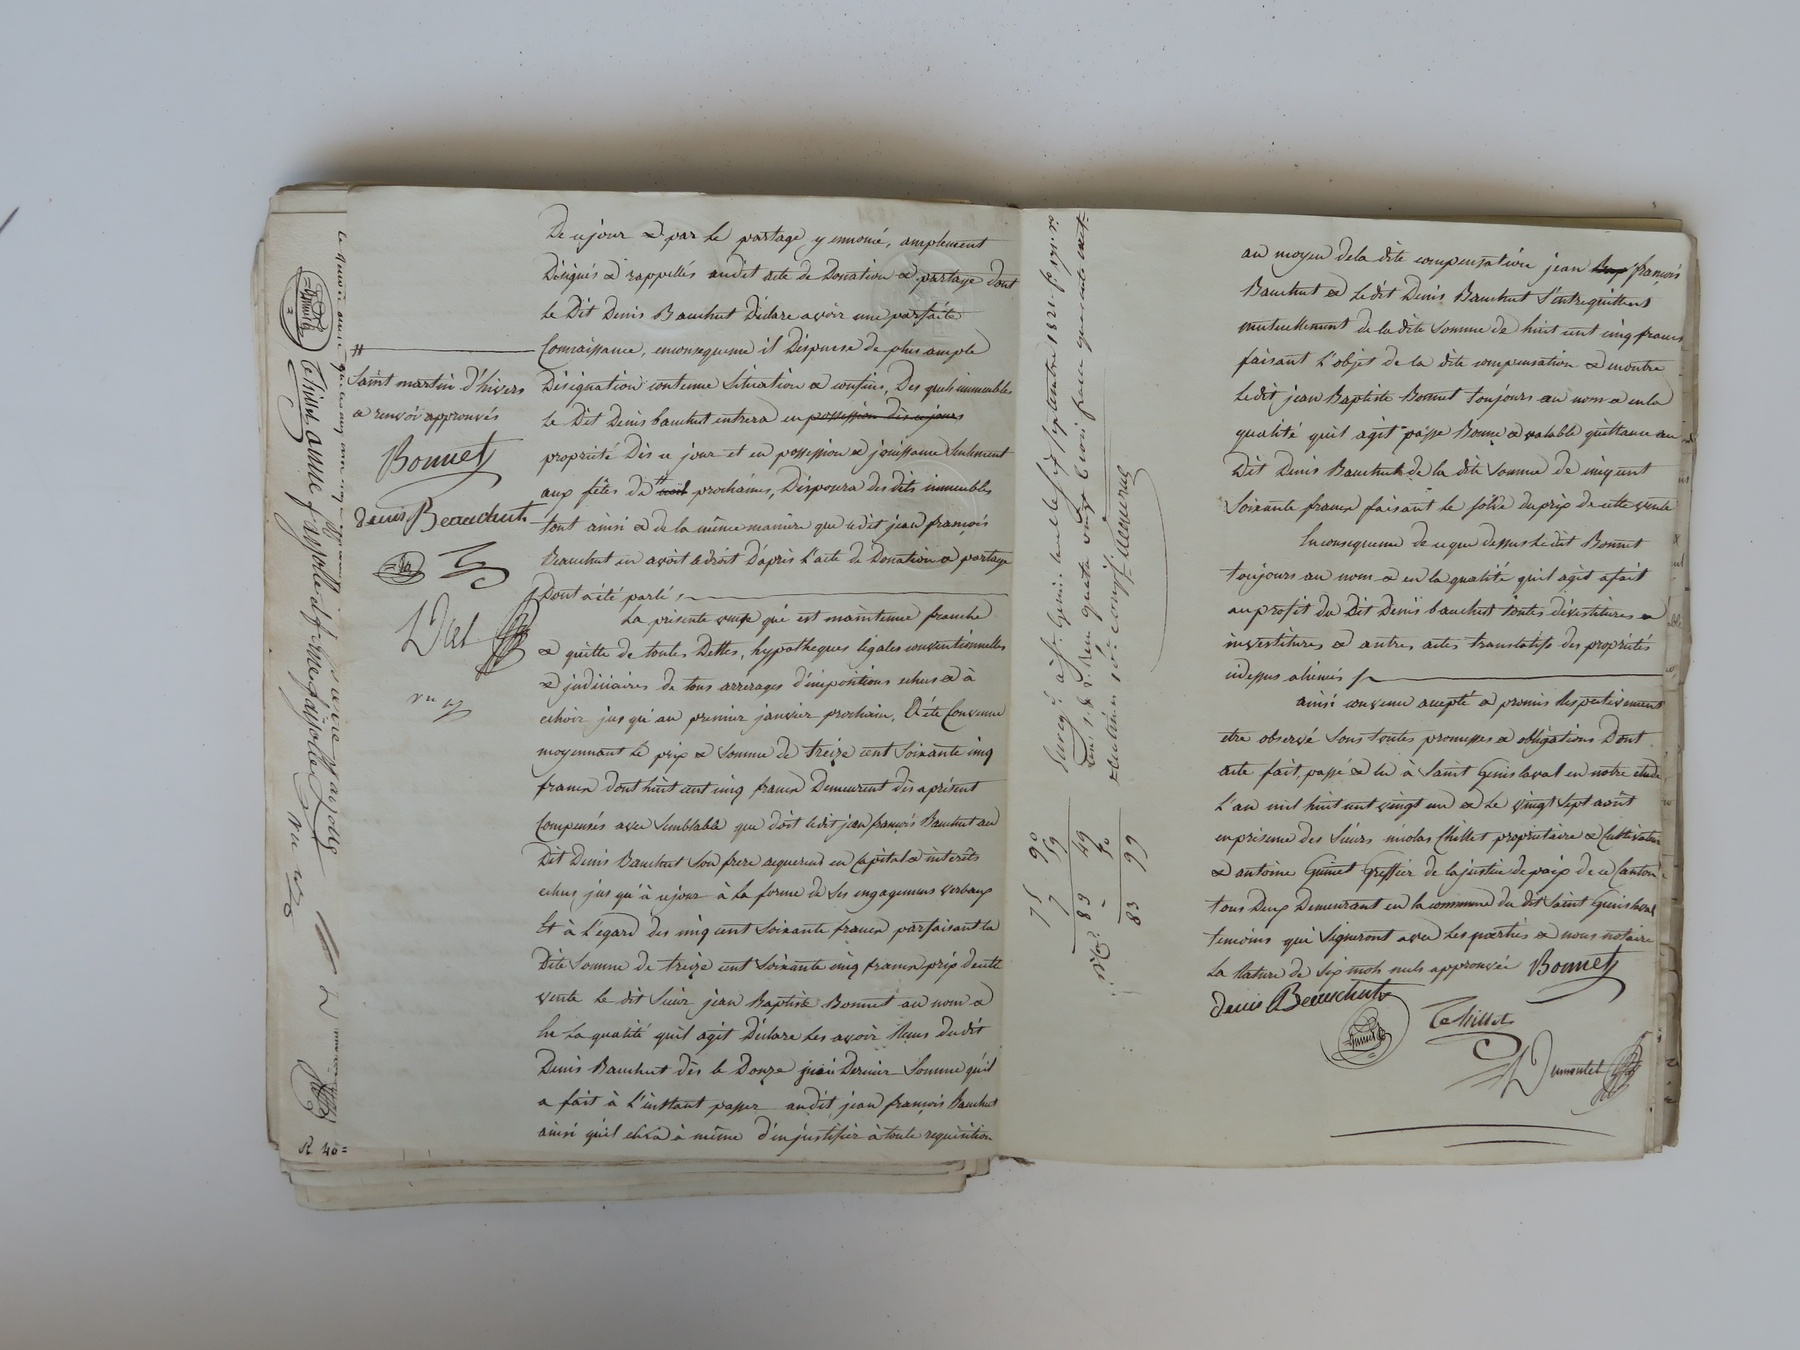 De ce jour & par le partage y ennoncé, amplement
Désignés & rappellés audit acte de Donation & partage dont
Le Dit Denis Bauchut Déclare avoir une parfaite
Connaissance, enconsequence il Dispense de plus ample
Désignation contenue Situation & confins, Des quels immeubles
Le Dit Denis bauchut entrera en possession dès ce jour
propriété Dès ce jour et en possession & jouissance Seulement
aux fêtes de # noël prochaines, Disposera des dits immeubles
tout ainsi & de la même maniere que ledit jean françois
Bauchut en avoit le droit D'après L'acte de Donation & partage
Dont a été parlé
La présente vente qui est maintenue franche
& quitte de toutes Dettes, hypotheques légales conventionnelles
& judiciaires de tous arrérages d'impositions echus & à
echoir jusqu'au premier janvier prochain, A été Convenue
moyennant le prix & Somme de treize cent Soixante cinq
francs dont huit cent cinq francs Demeurent dès aprésent
Compensés avec Semblable que doit ledit jean françois Bauchut au
Dit Denis Bauchut Son frere acquereur en Capital & interêts
echus jusqu'à ce jour à la forme de Ses engagemens verbaux
Et à L'égard des cinq cent Soixante francs parfaisant la
Dite Somme de treize cent Soixante cinq francs prix de cette
vente Le dit Sieur jean Baptiste Bonnet au nom &
En La qualité qu'il agit Déclare Les avoir Reçus dudit
Denis Bauchut dès le Douze juin Dernier Somme qu'il
a fait à L'instant passer audit jean françois Bauchut
ainsi qu'il sera à même d'en justifier à toute requisition
#
Saint martin d'hivers
a renvoi approuvés
Bonnet
denis Beauchut
R 40=
75 90
7 59
83 49
83 99
au moyen dela dite compensation jean Bap françois
Bauchut & Ledit Denis Bauchut S'entrequittent
mutuellement de la dite Somme de huit cent cinq francs
faisant L'objet de la dite compensation & en outre
Ledit jean Baptiste Bonnet toujours au nom & en la
qualité qu'il agit passe Bonne & valable quittance au
Dit Denis Bauchut de la dite Somme de cinq cent
Soixante francs faisant le Solde du prix de cette vente
En consequence de ce que dessus Ledit Bonnet
toujours au nom & en la qualité qu'il agit a fait
au profit du Dit Denis bauchut toutes dévestitures &
investitures & autres actes translatifs des propriétés
cidessus aliénés
ainsi convenu accepté & promis Respectivement
etre observé Sous toutes promesses & obligations Dont
acte fait, passé & lu à Saint Genis laval en notre etude
L'an mil huit cent vingt un & Le vingt Sept août
en présence des Sieurs nicolas Chillet proprietaire & Cultivateur
& antoine Guinet Greffier de la justice de paix de ce Canton
tous Deux Demeurant en la commune du dit Saint Genis laval
temoins qui Signeront avec Les parties & nous notaire
La Rature de Six mots nuls approuvée Bonnet
denis Beauchut
Guinet
Chillet
Dumontet